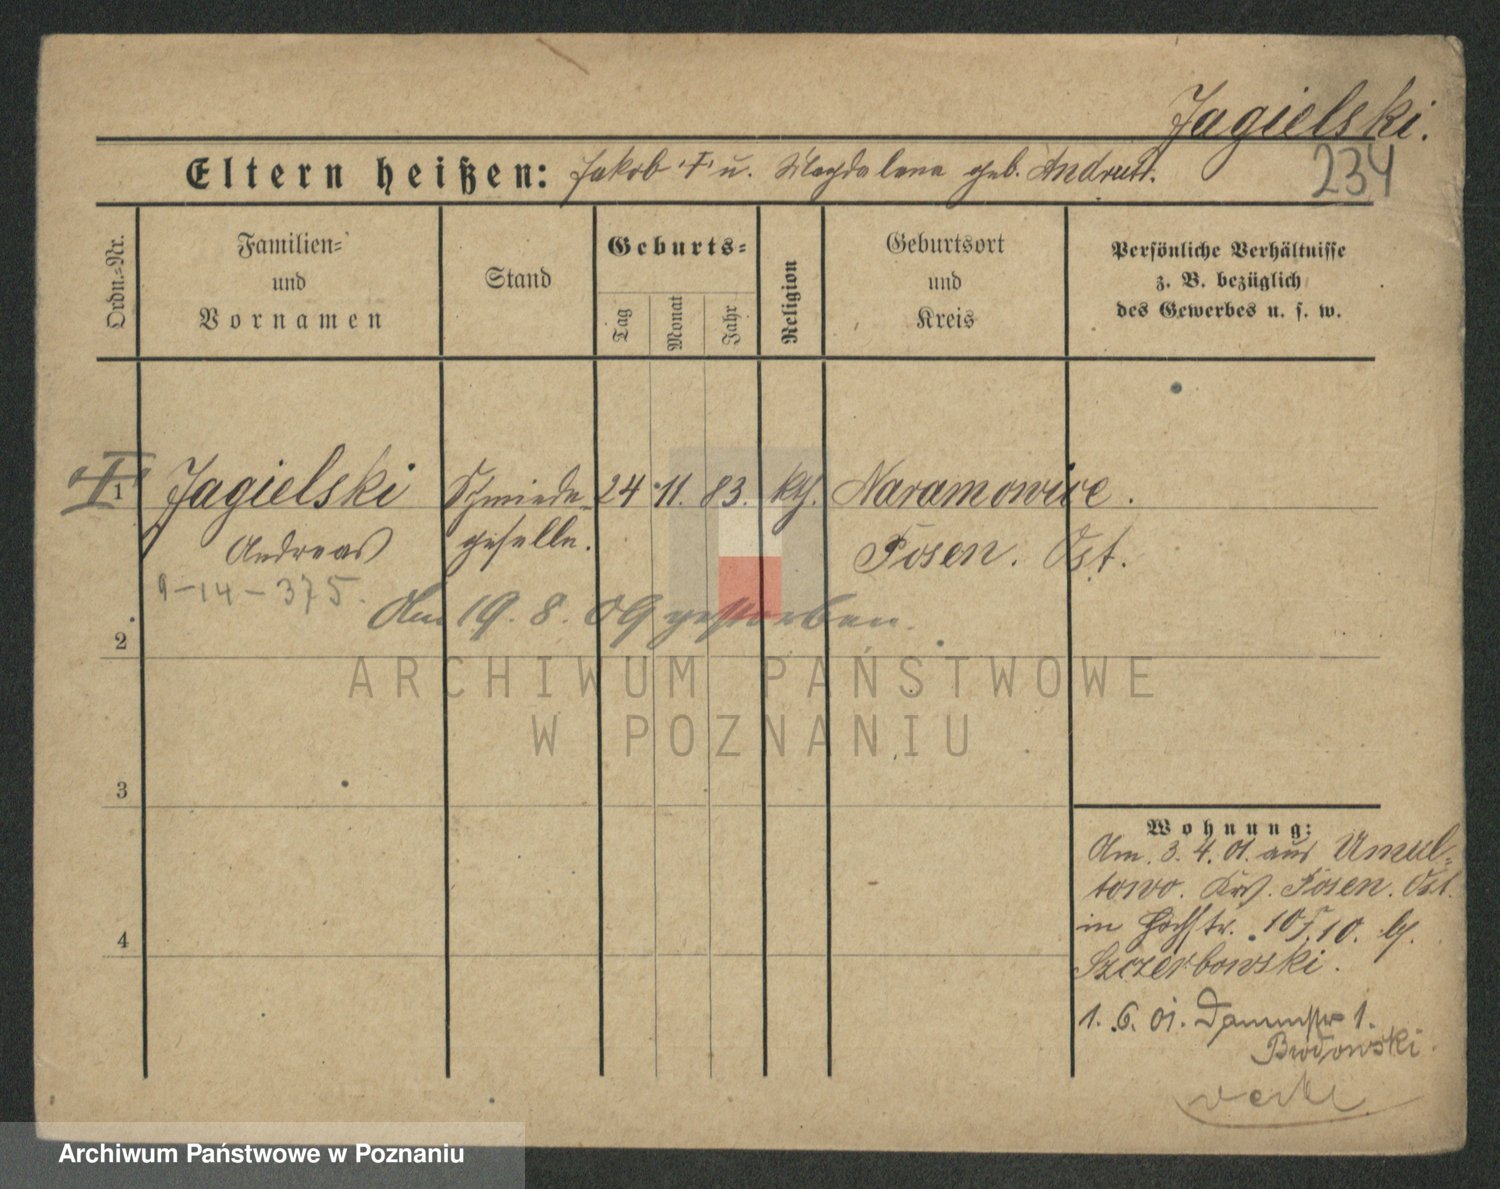 Jagielski.
234
Eltern heißen: Jakob † u. Magdalena geb. Andrutt.
Ordn.=Nr.
Familien=
und
Vornamen
Stand
Geburts=
Tag
Monat
Jahr
Religion
Geburtsort
und
Kreis
Persönliche Verhältnisse
z. B. bezüglich
des Gewerbes u. s. w.
1 Jagielski Schmiede= 24 11. 83. kth. Naramowice.
Andreas geselle. Posen. Ost.
9-14-375.
Am 19. 8. 09 gestorben.
2
3
4
ARCHIWUM PAŃSTWOWE
W POZNANIU
Wohnung:
Am 3. 4. 01. aus Umul=
towo. Krs. Posen. Ost.
in Hochstr. 10 b.
Szczerbowski.
1. 6. 01. Dammstr 1.
Budowski.
Archiwum Państwowe w Poznaniu